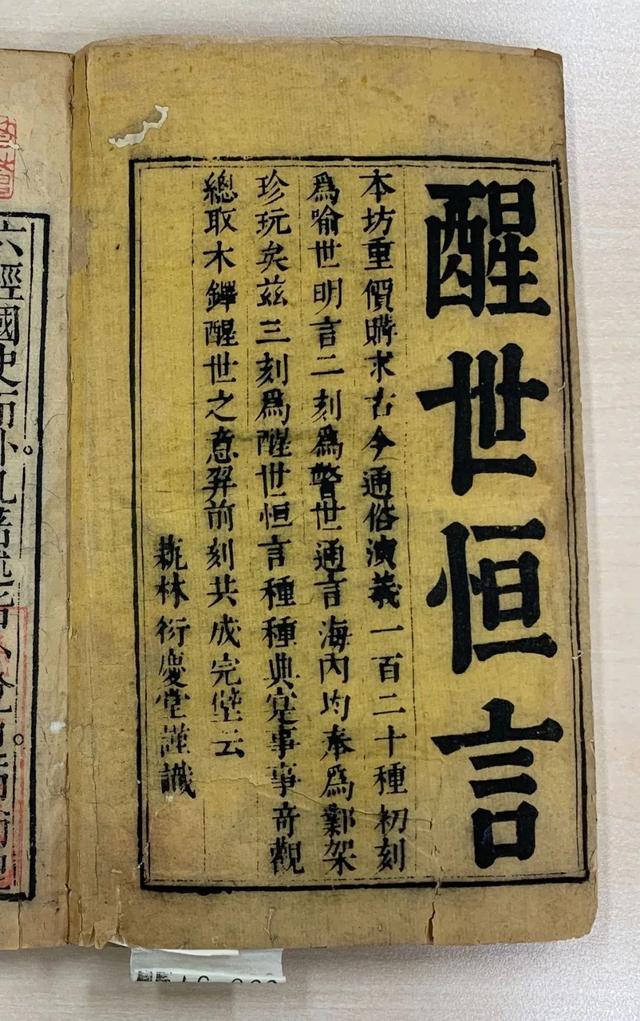 醒世恒言
本坊重價購求古今通俗演義一百二十種初刻
為喻世明言二刻為警世通言海內均奉為鄴架
珍玩矣茲三刻為醒世恒言種種典寔事事奇觀
總取木鐸醒世之意羿前刻共成完璧云
蓺林衍慶堂謹識
六經國史而外凡著述皆小說也